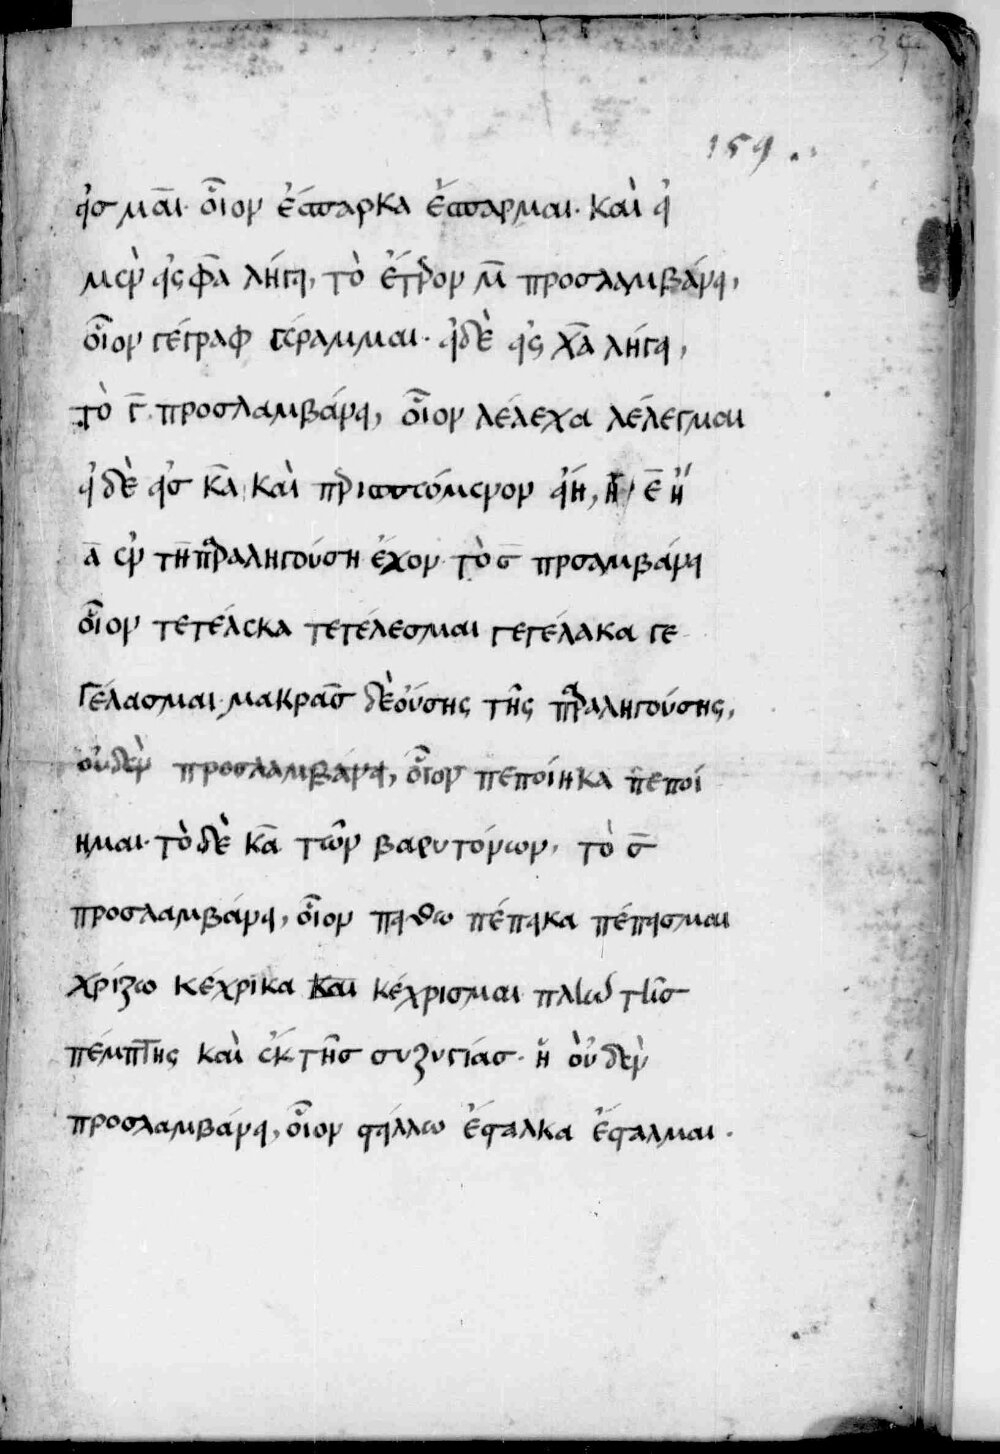 159
εἰς μαι. οἷον ἔσπαρκα ἔσπαρμαι. καὶ εἰ
μὲν εἰς φα λήγει, τὸ ἕτερον μ προσλαμβάνει,
οἷον γέγραφα γέγραμμαι. εἰ δὲ εἰς χα λήγει,
τὸ γ προσλαμβάνει, οἷον λέλεχα λέλεγμαι
εἰ δὲ εἰς κα καὶ περισπώμενον εἴη, ε ἢ
α ἐν τῇ παραληγούσῃ ἔχον τὸ σ προσλαμβάνει
οἷον τετέλεκα τετέλεσμαι γεγέλακα γε
γέλασμαι. μακρᾶς δὲ οὔσης τῆς παραληγούσης,
οὐδὲν προσλαμβάνει, οἷον πεποίηκα πεποί
ημαι. τὸ δὲ κα τῶν βαρυτόνων, τὸ σ
προσλαμβάνει, οἷον πείθω πέπεικα πέπεισμαι
χρίζω κέχρικα καὶ κέχρισμαι πλὴν τῆς
πέμπτης καὶ ἕκτης συζυγίας. ἢ οὐδὲν
προσλαμβάνει, οἷον ψάλλω ἔψαλκα ἔψαλμαι.